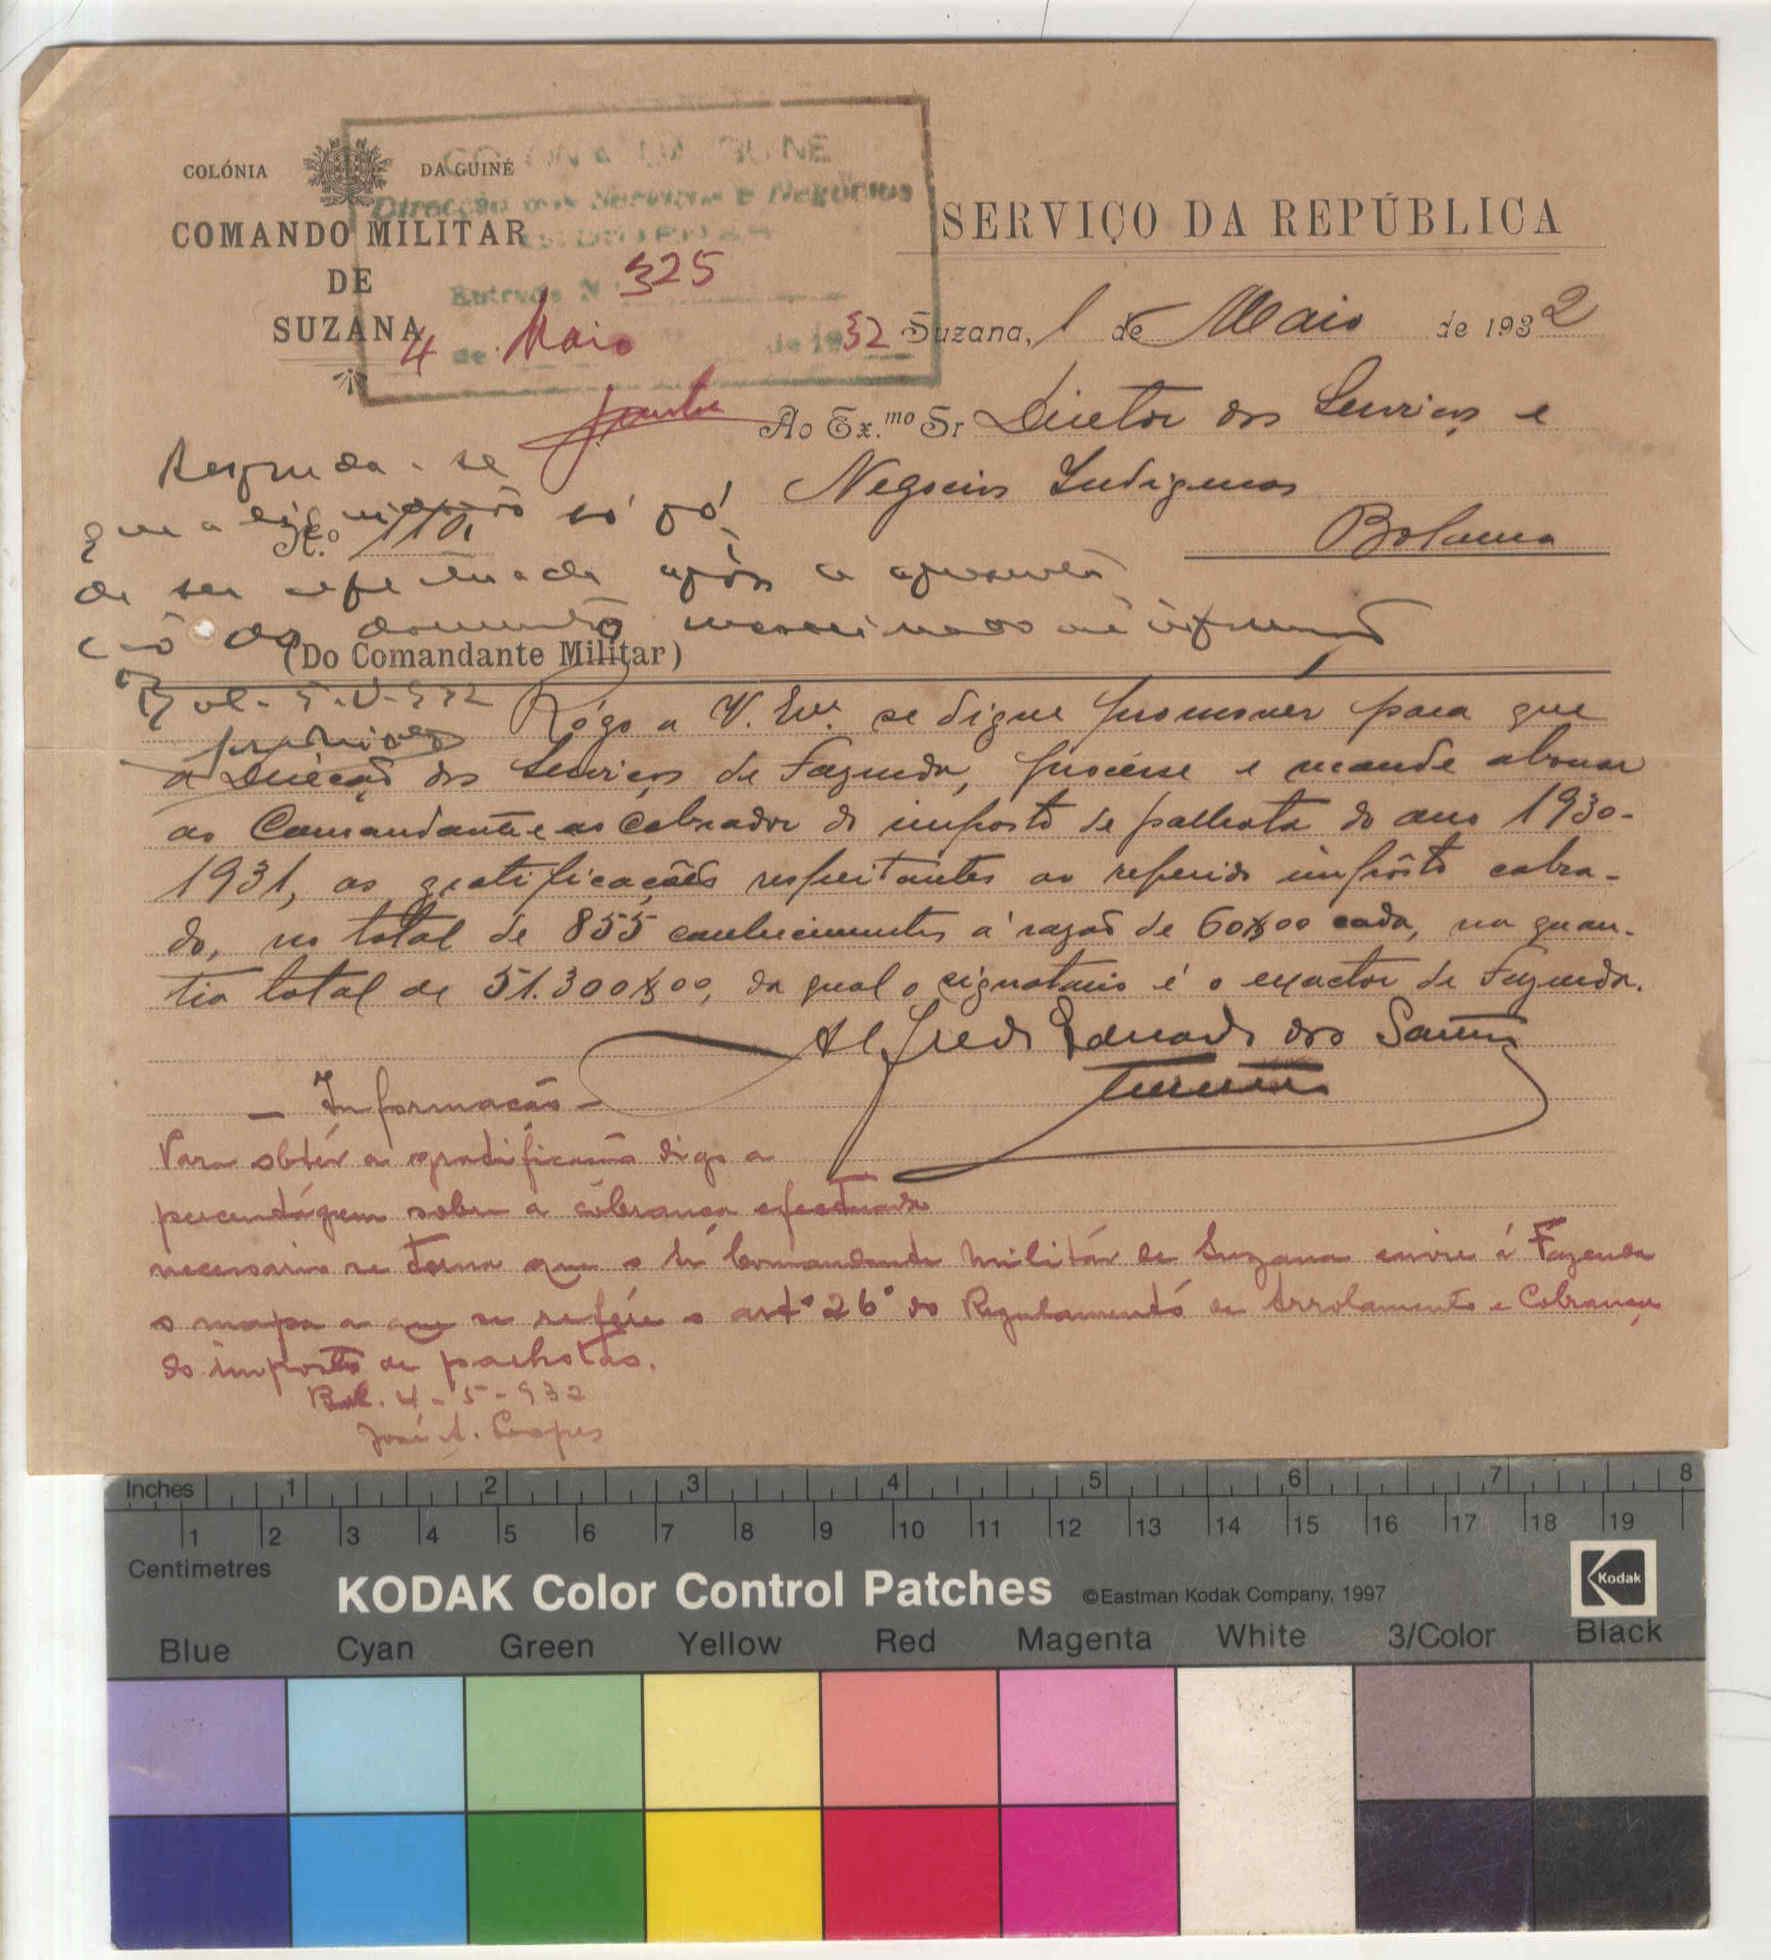 COLÓNIA DA GUINÉ
COMANDO MILITAR
DE
SUZANA
COLONIA DA GUINÉ
Direcção dos Serviços e Negócios
Entrada N.º 325
4 de Maio de 1932
SERVIÇO DA REPÚBLICA
Suzana, 1 de Maio de 1932
Ao Ex.mo Sr Diretor dos Serviços e
Negocios Indigenas
Bolama
N.º 110
Responda-se
que a só pó
de ser efetuada após a apresenta
ção do documento mencionado na informação
Bol. 5-V-932
(Do Comandante Militar)
Rógo a V. Exª. se digne promover para que
a Direcção dos Serviços de Fazenda, processe e mande abonar
ao Comandante e ao Cobrador do imposto de palhota do ano 1930-
1931, as gratificações respeitantes ao referido impôsto cobra-
do, no total de 855 conhecimentos á razão de 60$00 cada, na quan-
tia total de 51.300$00, da qual o signatario é o exactor de Fazenda.
Alfredo Eduardo dos Santos
Tenente
- Informação -
Para obtêr a gratificação digo a
percentágem sobre a cobrança efectuada
necessario se torna que o Sr Comandante Militár de Suzana envie á Fazenda
o mapa a que se refére o artº 26º do Regulamento de Arrolamento e Cobrança
do imposto de palhotas.
Bol. 4-5-932
José A. Lopes
Inches 1 2 3 4 5 6 7 8
1 2 3 4 5 6 7 8 9 10 11 12 13 14 15 16 17 18 19
Centimetres
KODAK Color Control Patches ©Eastman Kodak Company, 1997 Kodak
Blue Cyan Green Yellow Red Magenta White 3/Color Black